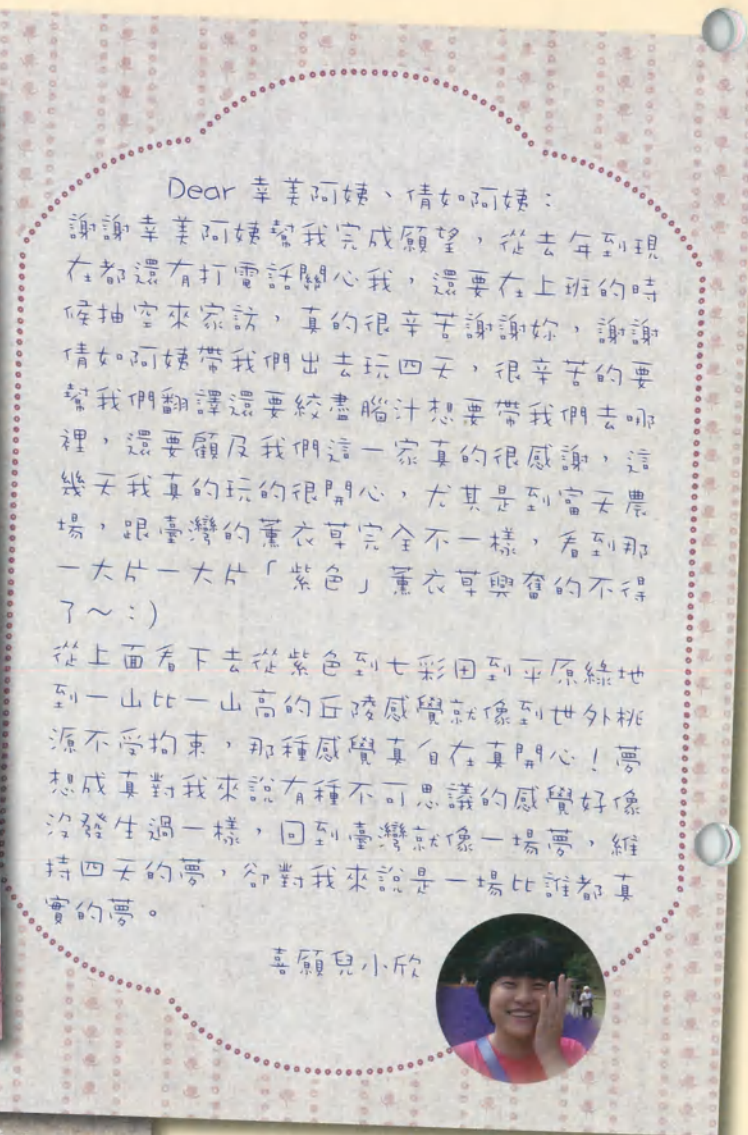 Dear 幸美阿姨、倩如阿姨：
謝謝幸美阿姨幫我完成願望，從去年到現
在都還有打電話關心我，還要在上班的時
候抽空來家訪，真的很辛苦謝謝妳，謝謝
倩如阿姨帶我們出去玩四天，很辛苦的要
幫我們翻譯還要絞盡腦汁想要帶我們去哪
裡，還要顧及我們這一家真的很感謝，這
幾天我真的玩的很開心，尤其是到富天農
場，跟臺灣的薰衣草完全不一樣，看到那
一大片一大片「紫色」薰衣草興奮的不得
了～：）
從上面看下去從紫色到七彩田到平原綠地
到一山比一山高的丘陵感覺就像到世外桃
源不受拘束，那種感覺真自在真開心！夢
想成真對我來說有種不可思議的感覺好像
沒發生過一樣，回到臺灣就像一場夢，維
持四天的夢，卻對我來說是一場比誰都真
實的夢。
喜願兒小欣